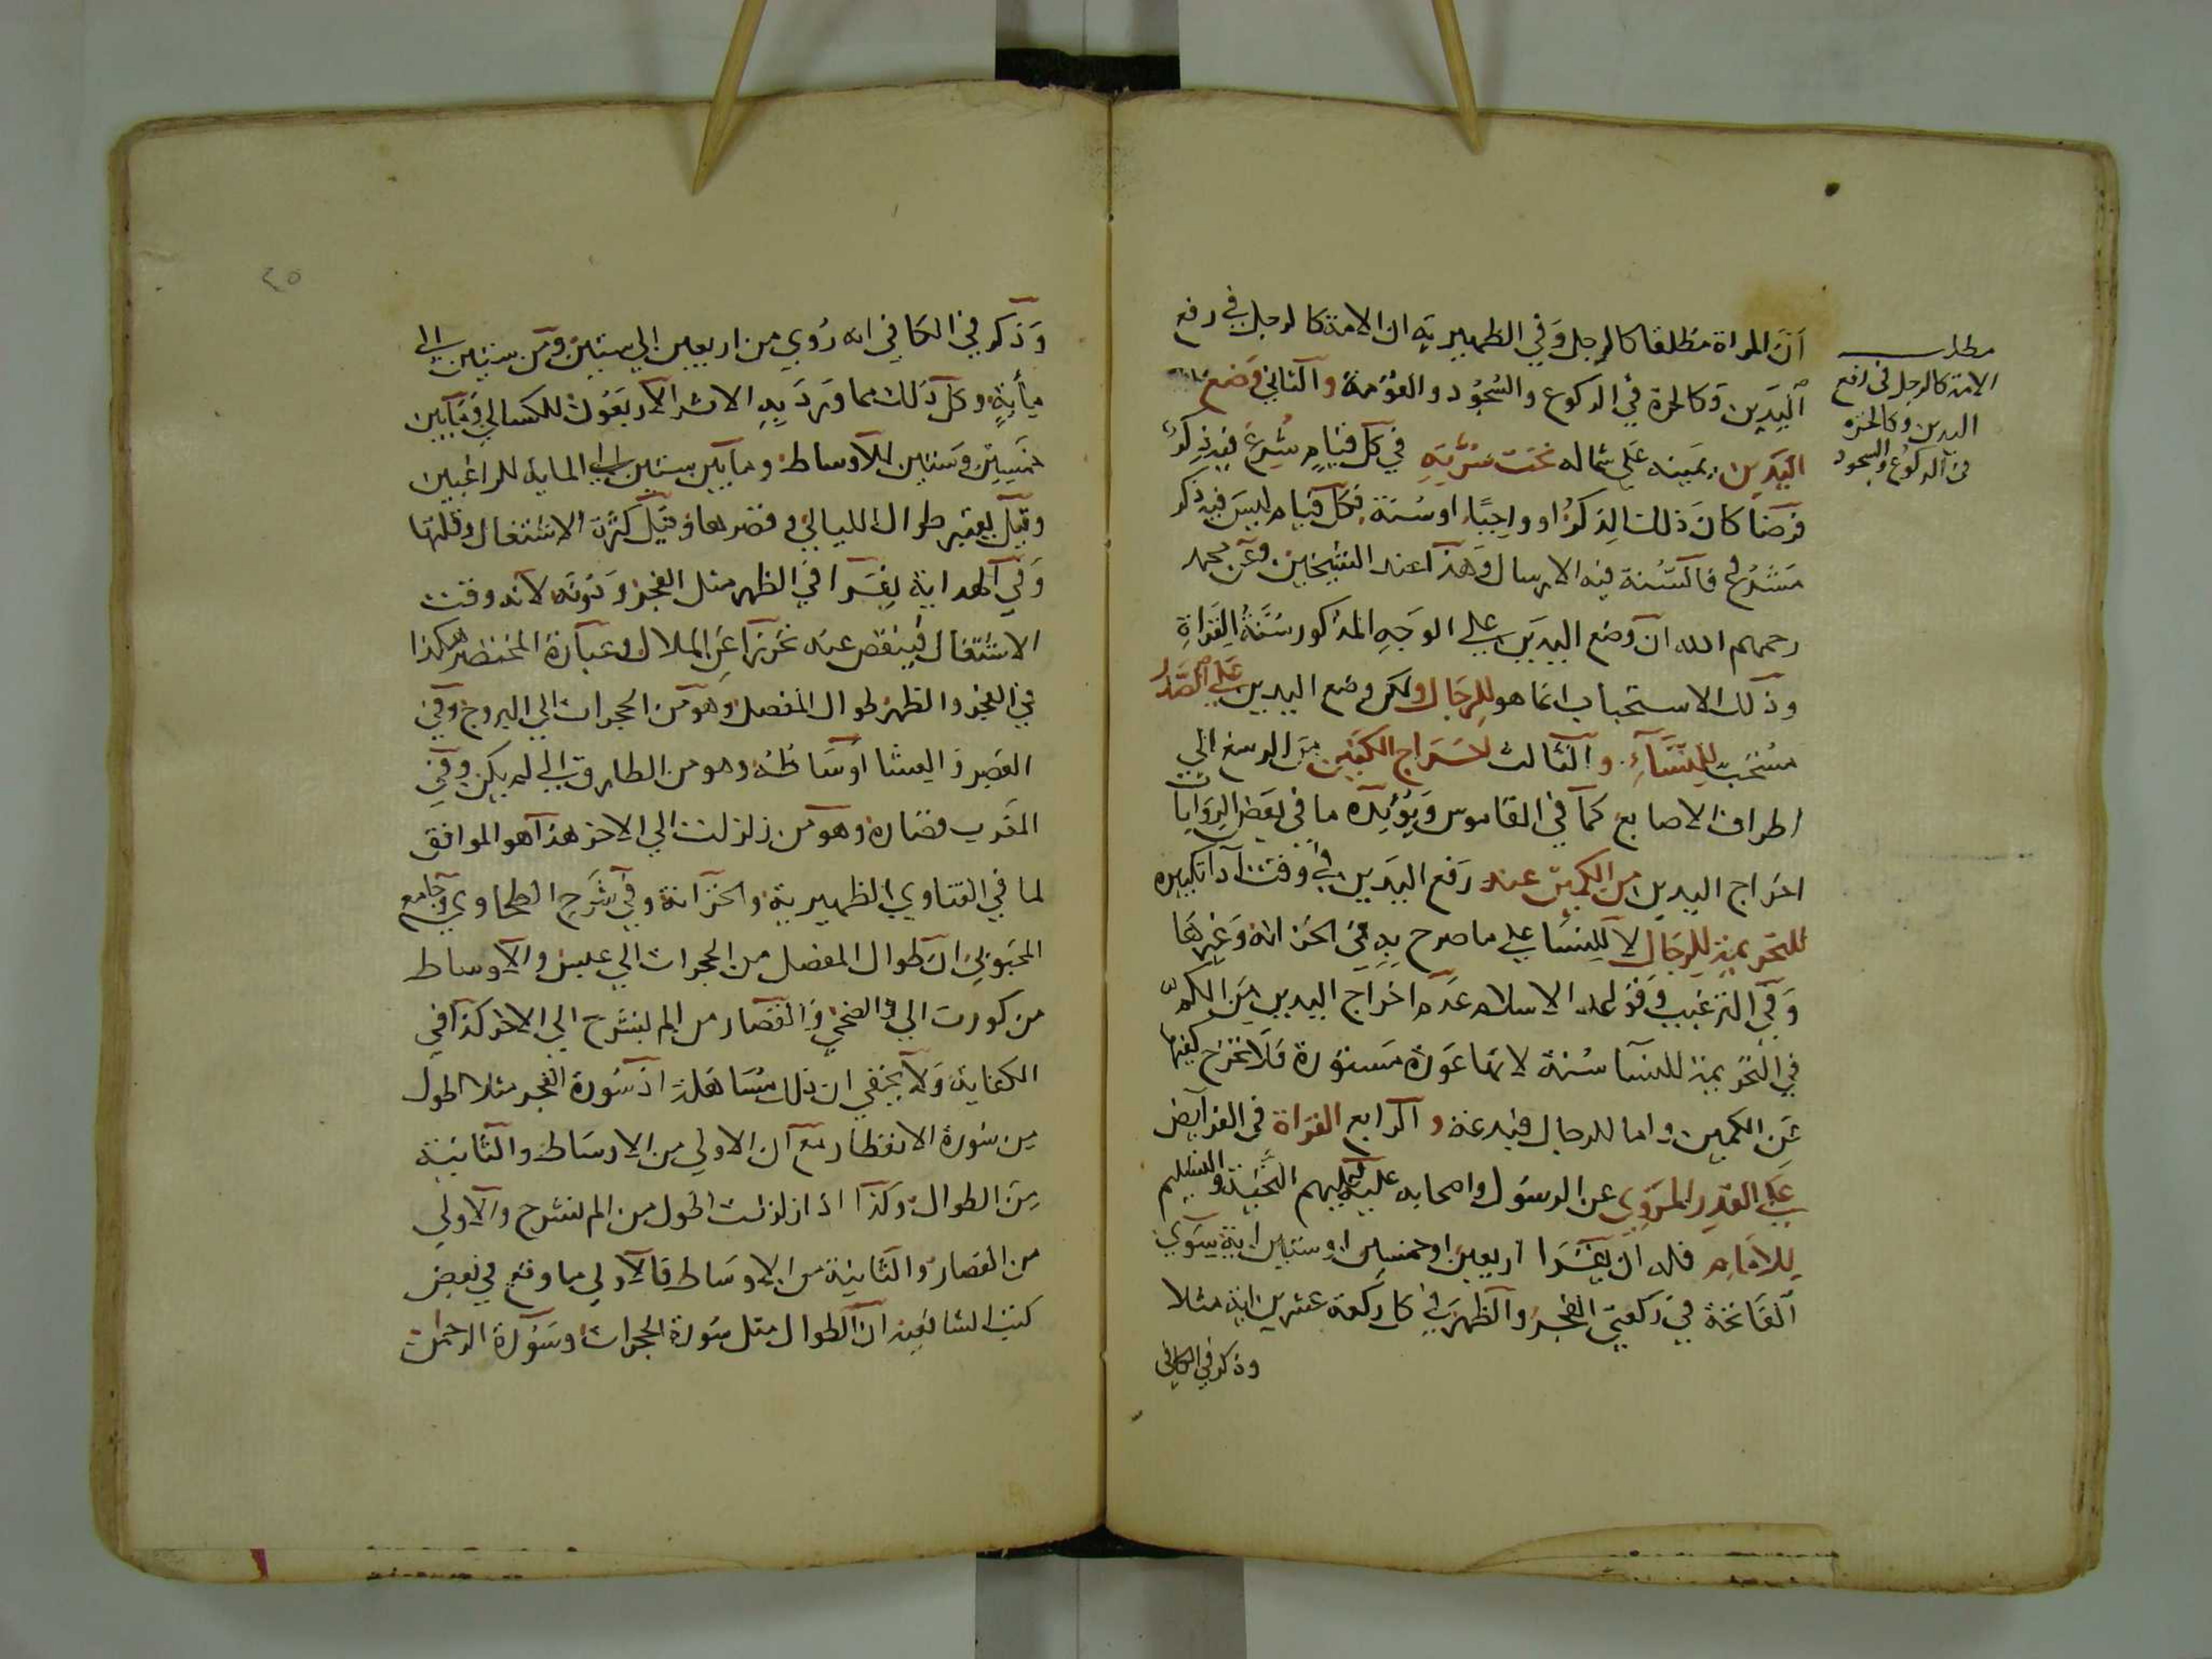 ان المراة مطلقا كالرجل وفي الظهيرية ان الامة كالرجل في رفع
اليدين وكالحرة في الركوع والسجود والقومة والثاني وضع
اليدين يمينه على شماله تحت سرته في كل قيام شرع فيه ذكر
فرضا كان ذلك الذكر او واجبا او سنة فكل قيام ليس فيه ذكر
مشروع فالسنة فيه الارسال وهذا عند الشيخين وعن محمد
رحمهم الله ان وضع اليدين على الوجه المذكور سنة القراة
وذلك الاستحباب انما هو للرجال ولكن وضع اليدين على الصدر
مستحب للنساء والثالث اخراج الكفين من الرسغ الي
اطراف الاصابع كما في القاموس ويؤيده ما في بعض الروايات
اخراج اليدين من الكمين عند رفع اليدين في وقت اداء تكبيره
للتحريمة للرجال لا للنسا على ما صرح به في الخزانة وغيرها
وفي الترغيب وفق لمله الاسلام عدم اخراج اليدين من الكم
في التحريمة للنسا سنة لانها عورة مستورة فلا تخرج كفيها
من الكمين واما للرجال فبدعة والرابع القراة في الفرايض
على القدر المروي عن الرسول واصحابه عليه وعليهم التحية والتسليم
للامام فله ان يقرا اربعين او خمسين او ستين اية سوي
الفاتحة في ركعتي الفجر والظهر في كل ركعة عشرين اية مثلا
وذكر في الكافي
مطلب
الامة كالرجل في رفع
اليدين وكالحرة
في الركوع والسجود
٢٥
وذكر في الكافي انه روي من اربعين الي ستين ومن ستين الي
مأية وكل ذلك مما ورد به الاثر الاربعون للكسالي ومابين
خمسين وستين للاوساط ومابين ستين الي الماية للراغبين
وقيل يعتبر طوال الليالي وقصرها وقيل كثرة الاشتغال وقلتها
وفي الهداية يقرا في الظهر مثل الفجر ودونه لانه وقت
الاشتغال فينقص عنه تحرزا عن الملال وعبارة المختصر هكذا
في الفجر والظهر طوال المفصل وهو من الحجرات الي البروج وفي
العصر والعشا اوساطه وهو من الطارق الي لم يكن وفي
المغرب قصاره وهو من زلزلت الي الاخر هذا هو الموافق
لما في الفتاوي الظهيرية والخزانة وفي شرح الطحاوي وجامع
المحبوبي ان طوال المفصل من الحجرات الي عبس والاوساط
من كورت الي والضحي والقصار من الم نشرح الي الاخر كذا في
الكفاية ولا يخفي ان ذلك مساهلة اذ سورة الفجر مثلا اطول
من سورة الانفطار مع ان الاولي من الاوساط والثانية
من الطوال وكذا اذا زلزلت اطول من الم نشرح والاولي
من القصار والثانية من الاوساط فالاولي ما وقع في بعض
كتب الشافعية ان الطوال مثل سورة الحجرات وسورة الرحمن